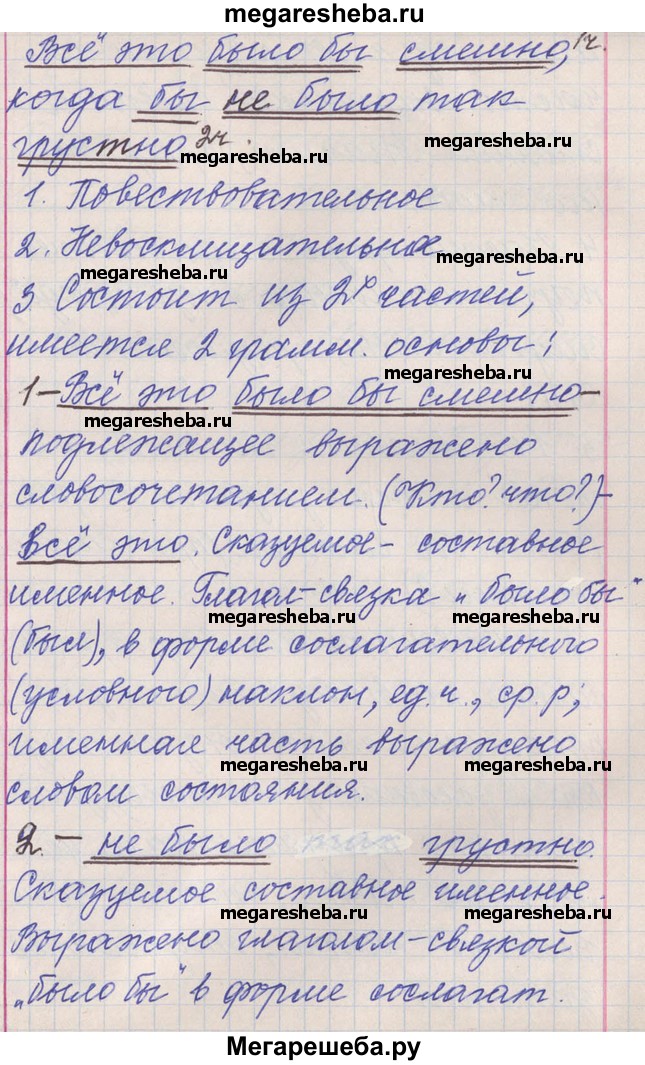 megaresheba.ru
Всё это было бы смешно, 1ч.
когда бы не было так
megaresheba.ru
грустно 2ч.
megaresheba.ru
1. Повествовательное
2. Невосклицательное
megaresheba.ru
megaresheba.ru
3 Состоит из 2х частей,
имеется 2 грамм. основы:
1 – Всё это было бы смешно –
megaresheba.ru
megaresheba.ru
подлежащее выражено
словосочетанием. (Кто? что?) –
megaresheba.ru
всё это. Сказуемое – составное
именное. Глагол-связка „было бы"
megaresheba.ru
megaresheba.ru
(был), в форме сослагательного
(условного) наклон, ед. ч., ср. р;
именная часть выражено
megaresheba.ru
megaresheba.ru
словом состояния.
2. – не было так грустно.
Сказуемое составное именное.
megaresheba.ru
megaresheba.ru
Выражено глаголом-связкой
„было бы" в форме сослагат.
Мегарешеба.ру